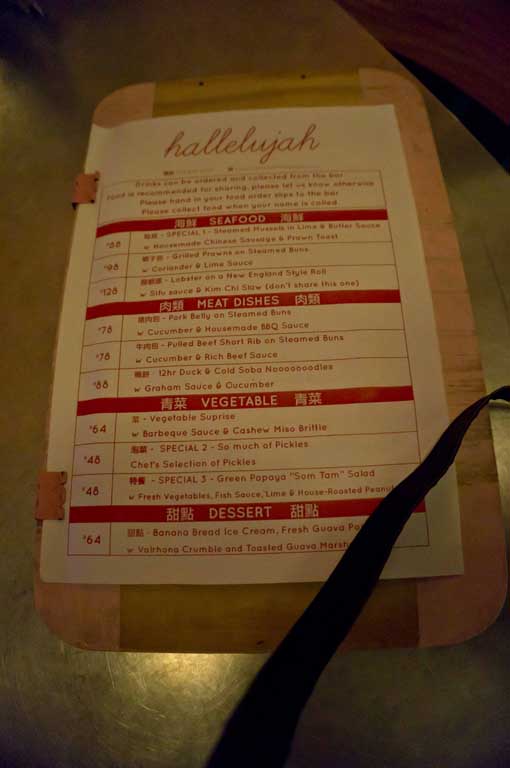 hallelujah
Drinks can be ordered and collected from the bar
Food is recommended for sharing, please let us know otherwise
Please hand in your food order slips to the bar
Please collect food when your name is called.
海鮮 SEAFOOD 海鮮
$88 - SPECIAL 1 - Steamed Mussels in Lime & Butter Sauce
w Homemade Chinese Sausage & Prawn Toast
$98 蝦子包 - Grilled Prawns on Steamed Buns
w Coriander & Lime Sauce
$128 - Lobster on a New England Style Roll
w Sifu sauce & Kim Chi Slaw (don't share this one)
肉類 MEAT DISHES 肉類
$78 燒肉包 - Pork Belly on Steamed Buns
w Cucumber & Housemade BBQ Sauce
$78 牛肉包 - Pulled Beef Short Rib on Steamed Buns
w Cucumber & Rich Beef Sauce
$88 鴨餅 - 12hr Duck & Cold Soba Nooooooodles
w Graham Sauce & Cucumber
青菜 VEGETABLE 青菜
$64 菜 - Vegetable Suprise
w Barbeque Sauce & Cashew Miso Brittle
$48 泡菜 - SPECIAL 2 - So much of Pickles
Chef's Selection of Pickles
$48 特餐 - SPECIAL 3 - Green Papaya "Som Tam" Salad
w Fresh Vegetables, Fish Sauce, Lime & House-Roasted Peanut
甜點 DESSERT 甜點
$64 甜點 - Banana Bread Ice Cream, Fresh Guava
w Valrhona Crumble and Toasted Guava Marsh